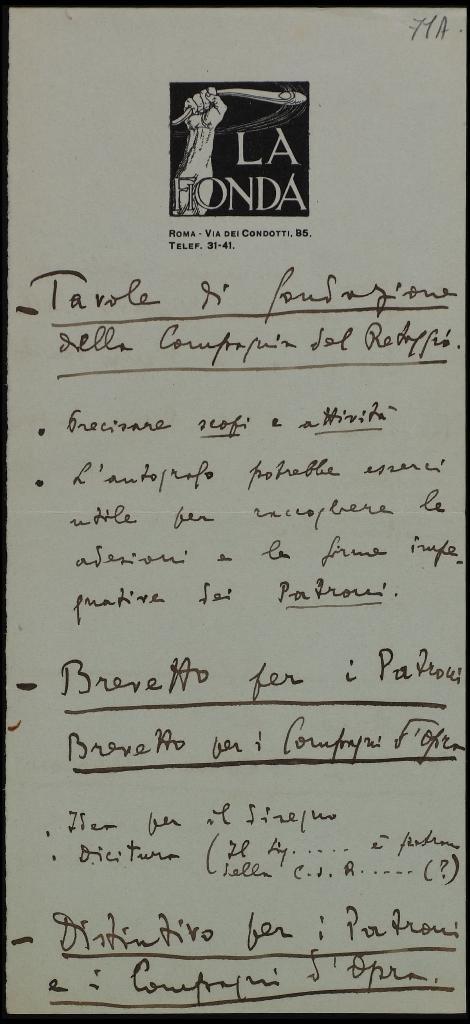 71A.
LA
FIONDA
ROMA - VIA DEI CONDOTTI, 85.
TELEF. 31-41.
- Tavole di fondazione
della Compagnia del Retaggio.
• Precisare scopi e attività
• L'autografo potrebbe esserci
utile per raccogliere le
adesioni e le firme impe-
gnative dei Patroni.
- Brevetto per i Patroni
Brevetto per i Compagni d'Opra
• Idea per il disegno
• Dicitura (Il Sig. ..... è patrono
della C. d. R. ..... (?)
- Distintivo per i Patroni
e i Compagni d'Opra.